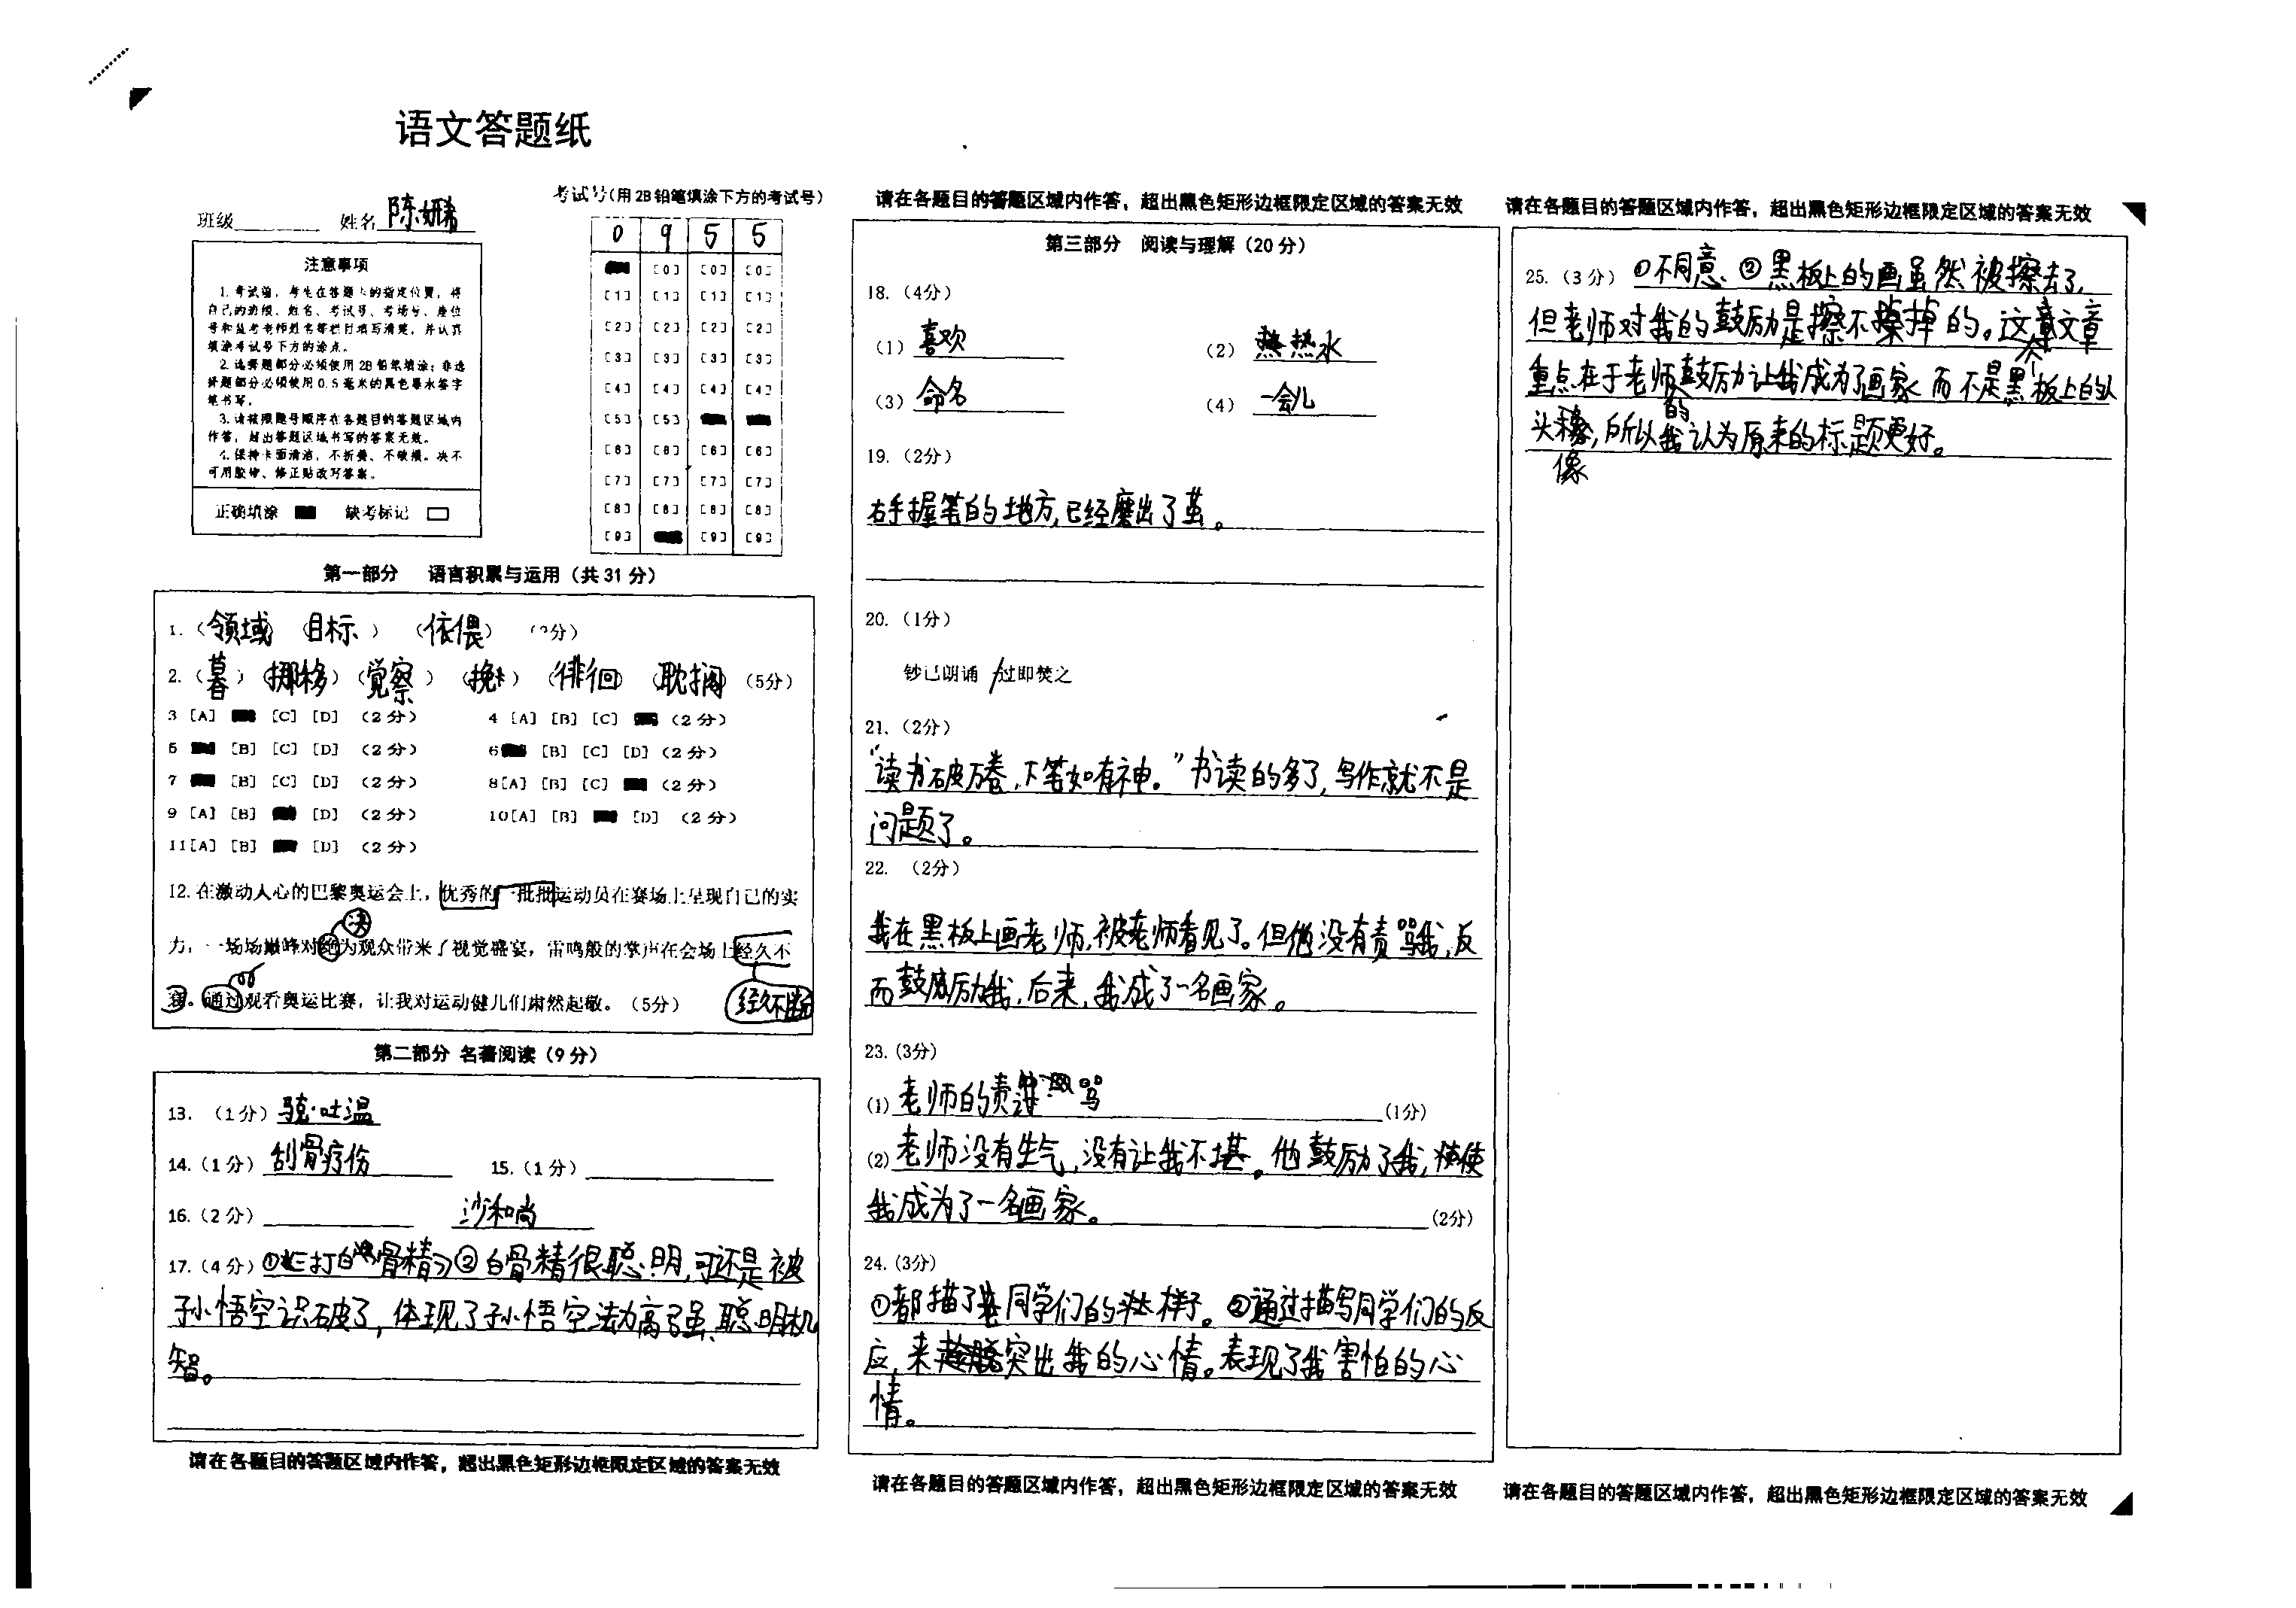 语文答题纸
班级 姓名 陈
考试号(用2B铅笔填涂下方的考试号)
0 9 5 5
注意事项
1.考试前,考生在答题卡的指定位置,将
自己的班级、姓名、考试号、考场号、座位
号和监考老师姓名等栏目填写清楚,并认真
填涂考试号下方的涂点。
2.选择题部分必须使用2B铅笔填涂;非选
择题部分必须使用0.5毫米的黑色墨水签字
笔书写。
3.请按照题号顺序在各题目的答题区域内
作答,超出答题区域书写的答案无效。
4.保持卡面清洁,不折叠、不破损。决不
可用胶带、修正贴改写答案。
正确填涂 缺考标记
[0] [0] [0]
[1] [1] [1] [1]
[2] [2] [2] [2]
[3] [3] [3] [3]
[4] [4] [4] [4]
[5] [5]
[6] [6] [6] [6]
[7] [7] [7] [7]
[8] [8] [8] [8]
[9] [9] [9]
第一部分 语言积累与运用(共31分)
1.(领域)(目标)(依偎)
2.(暮)(挪移)(觉察)(挽)(徘徊)(耽搁)(5分)
3 [A] [C] [D] (2分) 4 [A] [B] [C] (2分)
5 [B] [C] [D] (2分) 6 [B] [C] [D] (2分)
7 [B] [C] [D] (2分) 8[A] [B] [C] (2分)
9 [A] [B] [D] (2分) 10[A] [B] [D] (2分)
11[A] [B] [D] (2分)
12.在激动人心的巴黎奥运会上,优秀的一批批运动员在赛场上呈现自己的实
决
力,一场场巅峰对绝为观众带来了视觉盛宴,雷鸣般的掌声在会场上经久不
衰。通过观看奥运比赛,让我对运动健儿们肃然起敬。(5分) 经久不断
第二部分 名著阅读(9分)
13.(1分) 骁·吐温
14.(1分) 刮骨疗伤 15.(1分)
16.(2分) 沙和尚
17.(4分) ①《三打白骨精》②白骨精很聪明,可还是被
孙悟空识破了,体现了孙悟空法力高强、聪明机
智。
请在各题目的答题区域内作答,超出黑色矩形边框限定区域的答案无效
请在各题目的答题区域内作答,超出黑色矩形边框限定区域的答案无效
第三部分 阅读与理解(20分)
18.(4分)
(1) 喜欢 (2) 热水
(3) 命名 (4) 一会儿
19.(2分)
右手握笔的地方,已经磨出了茧。
20.(1分)
钞已朗诵 / 过即焚之
21.(2分)
“读书破万卷,下笔如有神。”书读的多了,写作就不是
问题了。
22.(2分)
我在黑板上画老师,被老师看见了。但他没有责骂我,反
而鼓励我,后来,我成了一名画家。
23.(3分)
(1) 老师的责骂 (1分)
(2) 老师没有生气,没有让我不堪。他鼓励了我,使
我成为了一名画家。 (2分)
24.(3分)
①都描了同学们的样子。②通过描写同学们的反
应,来突出我的心情。表现了我害怕的心
情。
请在各题目的答题区域内作答,超出黑色矩形边框限定区域的答案无效
请在各题目的答题区域内作答,超出黑色矩形边框限定区域的答案无效
25.(3分) ①不同意、②黑板上的画虽然被擦去了,
但老师对我的鼓励是擦不掉的。这文章
重点在于老师的鼓励让我成为了画家而不是黑板上的人
头像,所以我认为原来的标题更好。
请在各题目的答题区域内作答,超出黑色矩形边框限定区域的答案无效